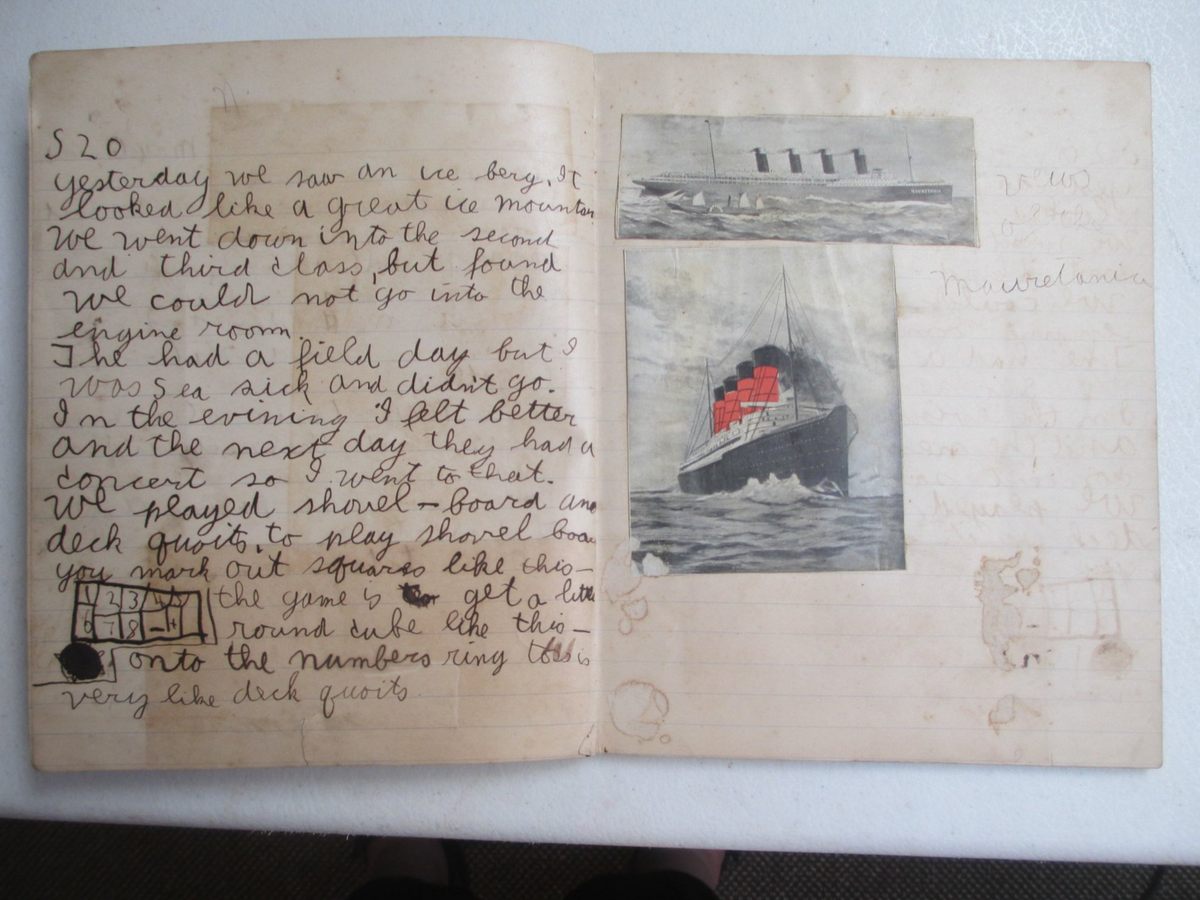 S 20
yesterday we saw an ice berg. It
looked like a great ice mountain
We went down into the second
and third class, but found
we could not go into the
engine room.
The had a field day but I
was sea sick and didnt go.
In the evining I felt better
and the next day they had a
concert so I went to that.
We played shovel-board and
deck quoits. to play shovel boa
you mark out squares like this-
1 2 3 4 5 the game is get a little
6 7 8 - + round cube like this-
onto the numbers ring toss is
very like deck quoits
MAURETANIA
Mauretania